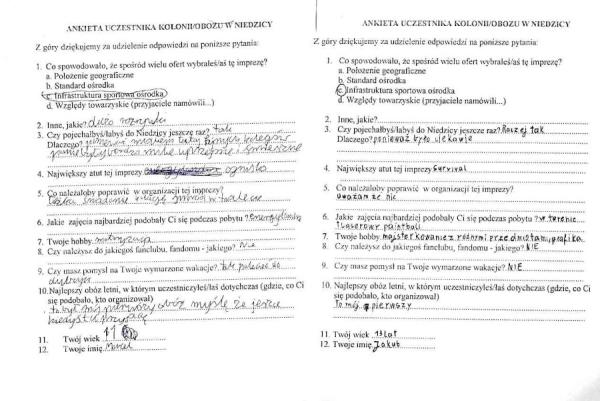 ANKIETA UCZESTNIKA KOLONII/OBOZU W NIEDZICY
Z góry dziękujemy za udzielenie odpowiedzi na poniższe pytania:
1. Co spowodowało, że spośród wielu ofert wybrałeś/aś tę imprezę?
a. Położenie geograficzne
b. Standard ośrodka
c. Infrastruktura sportowa ośrodka
d. Względy towarzyskie (przyjaciele namówili...)
2. Inne, jakie? dużo rozrywki
3. Czy pojechałbyś/łabyś do Niedzicy jeszcze raz? tak
Dlaczego?
4. Największy atut tej imprezy ognisko
5. Co należałoby poprawić w organizacji tej imprezy?
6. Jakie zajęcia najbardziej podobały Ci się podczas pobytu?
7. Twoje hobby
8. Czy należysz do jakiegoś fanclubu, fandomu - jakiego? Nie
9. Czy masz pomysł na Twoje wymarzone wakacje? tak
10. Najlepszy obóz letni, w którym uczestniczyłeś/łaś dotychczas (gdzie, co Ci
się podobało, kto organizował)
to był mój pierwszy obóz myślę że jeszcze
kiedyś tu przyjadę
11. Twój wiek 11
12. Twoje imię Marcel
ANKIETA UCZESTNIKA KOLONII/OBOZU W NIEDZICY
Z góry dziękujemy za udzielenie odpowiedzi na poniższe pytania:
1. Co spowodowało, że spośród wielu ofert wybrałeś/aś tę imprezę?
a. Położenie geograficzne
b. Standard ośrodka
c. Infrastruktura sportowa ośrodka
d. Względy towarzyskie (przyjaciele namówili...)
2. Inne, jakie?
3. Czy pojechałbyś/łabyś do Niedzicy jeszcze raz? Raczej tak
Dlaczego? ponieważ było ciekawie
4. Największy atut tej imprezy Survival
5. Co należałoby poprawić w organizacji tej imprezy?
Uważam że nic
6. Jakie zajęcia najbardziej podobały Ci się podczas pobytu? w terenie
i Laserowy paintball
7. Twoje hobby majsterkowanie z różnymi przedmiotami, grafika
8. Czy należysz do jakiegoś fanclubu, fandomu - jakiego? NIE
9. Czy masz pomysł na Twoje wymarzone wakacje? NIE
10. Najlepszy obóz letni, w którym uczestniczyłeś/łaś dotychczas (gdzie, co Ci
się podobało, kto organizował)
To mój pierwszy
11. Twój wiek 13 lat
12. Twoje imię Jakub